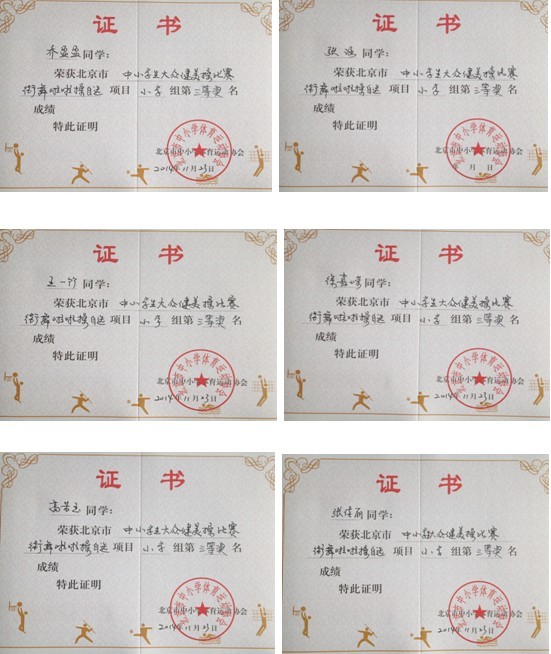 证 书
乔盈盈同学：
荣获北京市 中小学生大众健美操比赛
街舞啦啦操自选 项目 小学 组第 三等奖 名
成绩
特此证明
北京市中小学体育运动协会
2014年11月23日
证 书
张 涵 同学：
荣获北京市 中小学生大众健美操比赛
街舞啦啦操自选 项目 小学 组第 三等奖 名
成绩
特此证明
北京市中小学体育运动协会
月 日
证 书
王一 同学：
荣获北京市 中小学生大众健美操比赛
街舞啦啦操自选 项目 小学 组第 三等奖 名
成绩
特此证明
北京市中小学体育运动协会
2014年11月23日
证 书
徐嘉 同学：
荣获北京市 中小学生大众健美操比赛
街舞啦啦操自选 项目 小学 组第 三等奖 名
成绩
特此证明
北京市中小学体育运动协会
2014年11月23日
证 书
高 同学：
荣获北京市 中小学生大众健美操比赛
街舞啦啦操自选 项目 小学 组第 三等奖 名
成绩
特此证明
北京市中小学体育运动协会
2014年11月23日
证 书
张佳丽同学：
荣获北京市 中小学生大众健美操比赛
街舞啦啦操自选 项目 小学 组第 三等奖 名
成绩
特此证明
北京市中小学体育运动协会
2014年11月23日